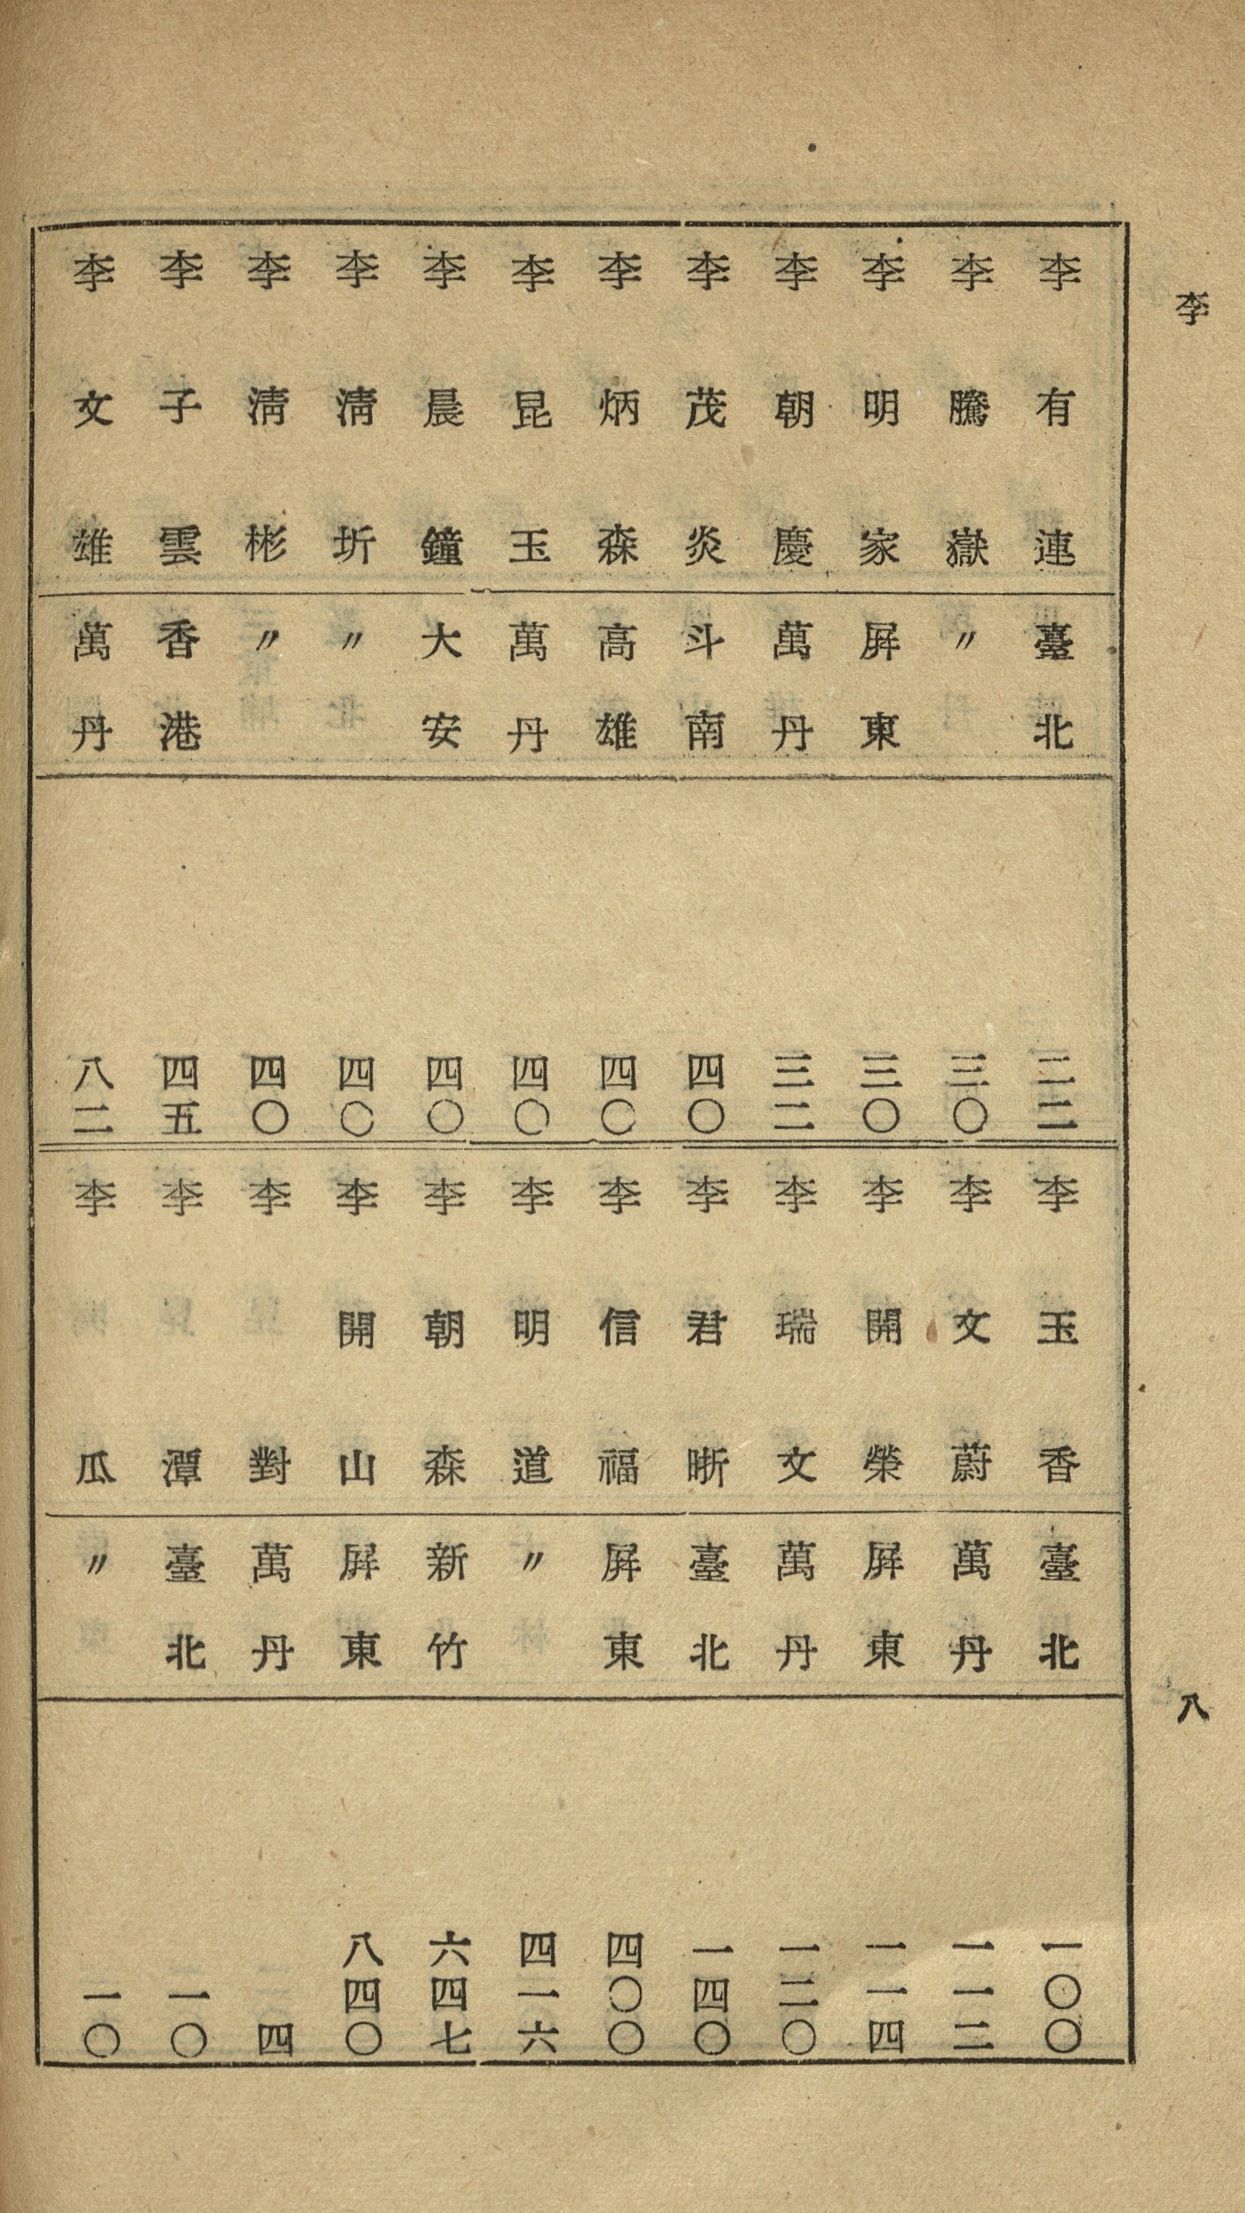 李
八
李有連 臺北 二二
李騰嶽 〃 三〇
李明家 屏東 三〇
李朝慶 萬丹 三二
李茂炎 斗南 四〇
李炳森 高雄 四〇
李昆玉 萬丹 四〇
李晨鐘 大安 四〇
李淸圻 〃 四〇
李淸彬 〃 四〇
李子雲 香港 四五
李文雄 萬丹 八二
李玉香 臺北 一〇〇
李文蔚 萬丹 一一二
李開榮 屏東 一一四
李瑞文 萬丹 一二〇
李君晣 臺北 一四〇
李信福 屏東 四〇〇
李明道 〃 四一六
李朝森 新竹 六四七
李開山 屏東 八四〇
李對 萬丹 四
李潭 臺北 一〇
李瓜 〃 一〇